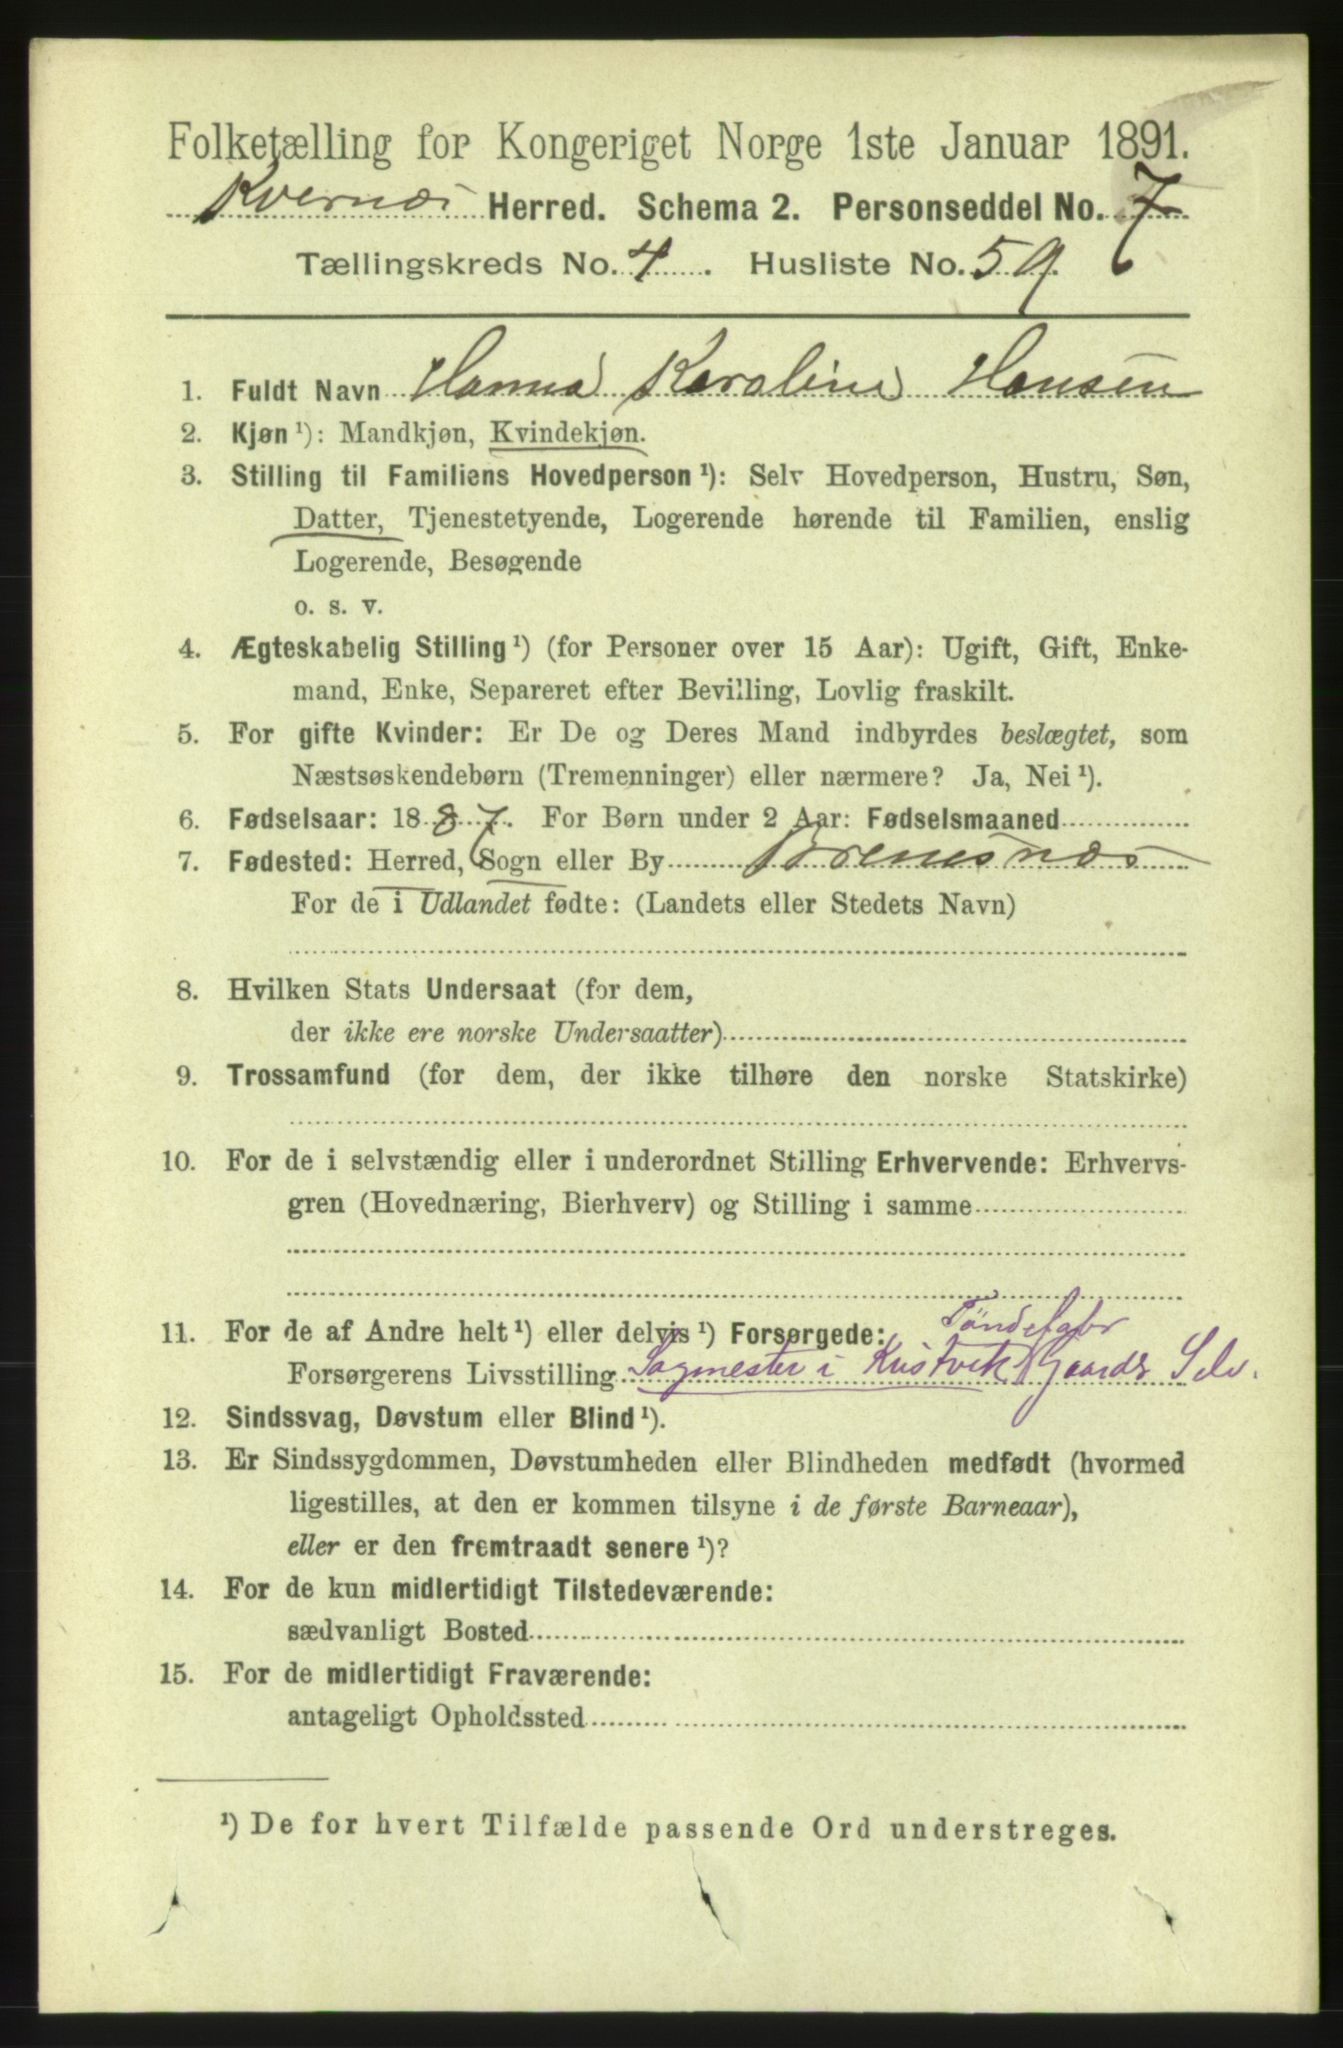 Folketælling for Kongeriget Norge 1ste Januar 1891.
Kvernæs Herred. Schema 2. Personseddel No. 7
Tællingskreds No. 4. Husliste No. 59.
1. Fuldt Navn Hanna Karoline Hansen
2. Kjøn ¹): Mandkjøn, Kvindekjøn.
3. Stilling til Familiens Hovedperson ¹): Selv Hovedperson, Hustru, Søn,
Datter, Tjenestetyende, Logerende hørende til Familien, enslig
Logerende, Besøgende
o. s. v.
4. Ægteskabelig Stilling ¹) (for Personer over 15 Aar): Ugift, Gift, Enke-
mand, Enke, Separeret efter Bevilling, Lovlig fraskilt.
5. For gifte Kvinder: Er De og Deres Mand indbyrdes beslægtet, som
Næstsøskendebørn (Tremenninger) eller nærmere? Ja, Nei ¹).
6. Fødselsaar: 1887. For Børn under 2 Aar: Fødselsmaaned
7. Fødested: Herred, Sogn eller By Bremesnæs
For de i Udlandet fødte: (Landets eller Stedets Navn)
8. Hvilken Stats Undersaat (for dem,
der ikke ere norske Undersaatter)
9. Trossamfund (for dem, der ikke tilhøre den norske Statskirke)
10. For de i selvstændig eller i underordnet Stilling Erhvervende: Erhvervs-
gren (Hovednæring, Bierhverv) og Stilling i samme
11. For de af Andre helt ¹) eller delvis ¹) Forsørgede: Töndefabr
Forsørgerens Livsstilling Sagmester i Gaardb Selv.
12. Sindssvag, Døvstum eller Blind ¹).
13. Er Sindssygdommen, Døvstumheden eller Blindheden medfødt (hvormed
ligestilles, at den er kommen tilsyne i de første Barneaar),
eller er den fremtraadt senere ¹)?
14. For de kun midlertidigt Tilstedeværende:
sædvanligt Bosted
15. For de midlertidigt Fraværende:
antageligt Opholdssted
¹) De for hvert Tilfælde passende Ord understreges.